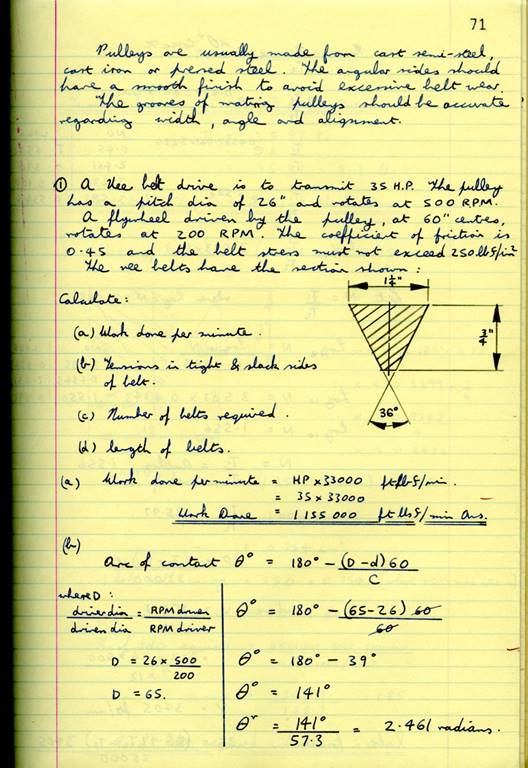 71
Pulleys are usually made from cast semi-steel,
cast iron or pressed steel. The angular sides should
have a smooth finish to avoid excessive belt wear.
The grooves of mating pulleys should be accurate
regarding width, angle and alignment.
① A Vee belt drive is to transmit 35 H.P. The pulley
has a pitch dia of 26" and rotates at 500 RPM.
A flywheel driven by the pulley, at 60" centres,
rotates at 200 RPM. The coefficient of friction is
0.45 and the belt stress must not exceed 250 lbf/in²
The vee belts have the section shown:
1¼"
Calculate:
(a) Work done per minute.
¾"
(b) Tensions in tight & slack sides
of belt.
36°
(c) Number of belts required.
(d) length of belts.
(a) Work done per minute = HP × 33000 ft lbf/min.
= 35 × 33000
Work Done = 1155 000 ft lbs f/min Ans.
(b)
Arc of contact θ° = 180° - (D-d)60
C
where D:
driver dia = RPM driven
driven dia RPM driver
D = 26 × 500
200
D = 65.
θ° = 180° - (65-26) 60
60
θ° = 180° - 39°
θ° = 141°
θʳ = 141° = 2.461 radians.
57.3